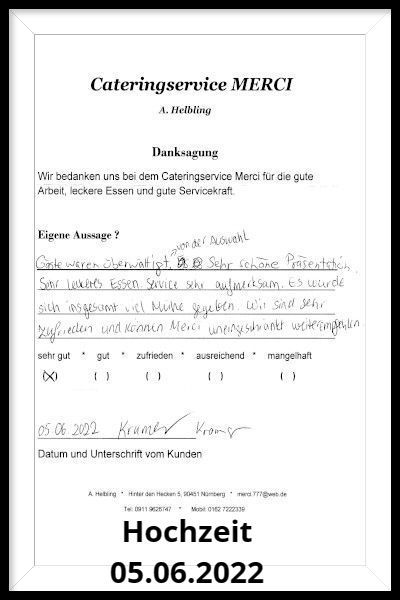 Cateringservice MERCI
A. Helbling
Danksagung
Wir bedanken uns bei dem Cateringservice Merci für die gute
Arbeit, leckere Essen und gute Servicekraft.
Eigene Aussage ?
von der Auswahl
Gäste waren überwältigt, Sehr schöne Präsentation,
Sehr leckeres Essen. Service sehr aufmerksam. Es wurde
sich insgesamt viel Mühe gegeben. Wir sind sehr
zufrieden und können Merci uneingeschränkt weiterempfehlen
sehr gut * gut * zufrieden * ausreichend * mangelhaft
(X) ( ) ( ) ( ) ( )
05.06.2022 Kramer Kramer
Datum und Unterschrift vom Kunden
A. Helbling * Hinter den Hecken 5, 90451 Nürnberg * merci.777@web.de
Tel: 0911 9626747 * Mobil: 0162 7222339
Hochzeit
05.06.2022